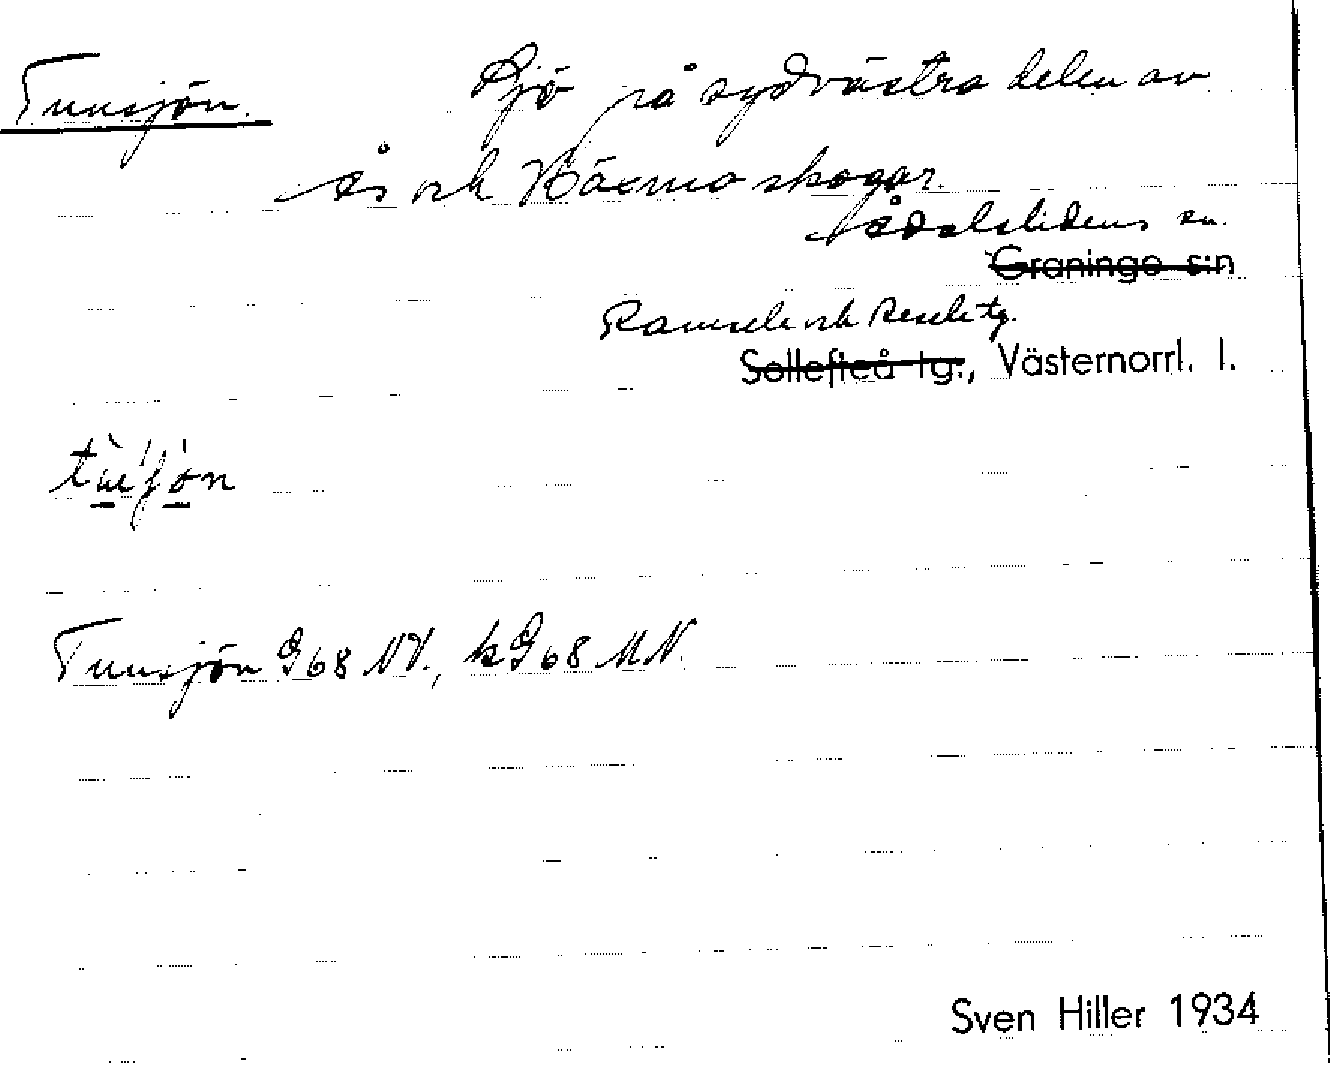 Tunsjön. Sjö på sydvästra delen av
Ås och Näsmo skogar.
Ådalslidens sn.
Graninge s:n
Ramsele och Resele tg.
Sollefteå tg., Västernorrl. l.
Tunsjön G68 NV., kG68 MN.
Sven Hiller 1934